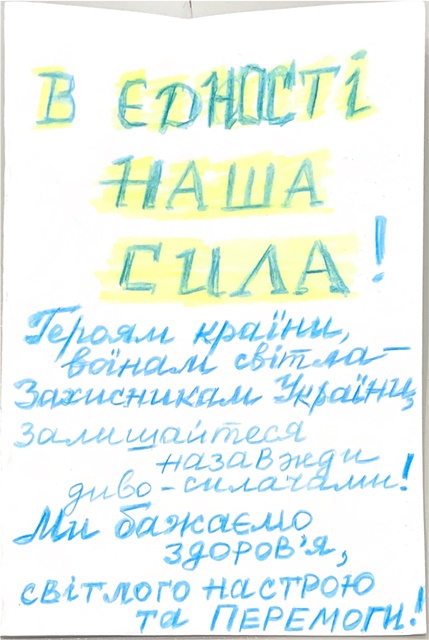 В ЄДНОСТІ
НАША
СИЛА!
Героям країни,
воїнам світла –
Захисникам України,
Залишайтеся
назавжди
диво-силачами!
Ми бажаємо
здоров'я,
світлого настрою
та ПЕРЕМОГИ!